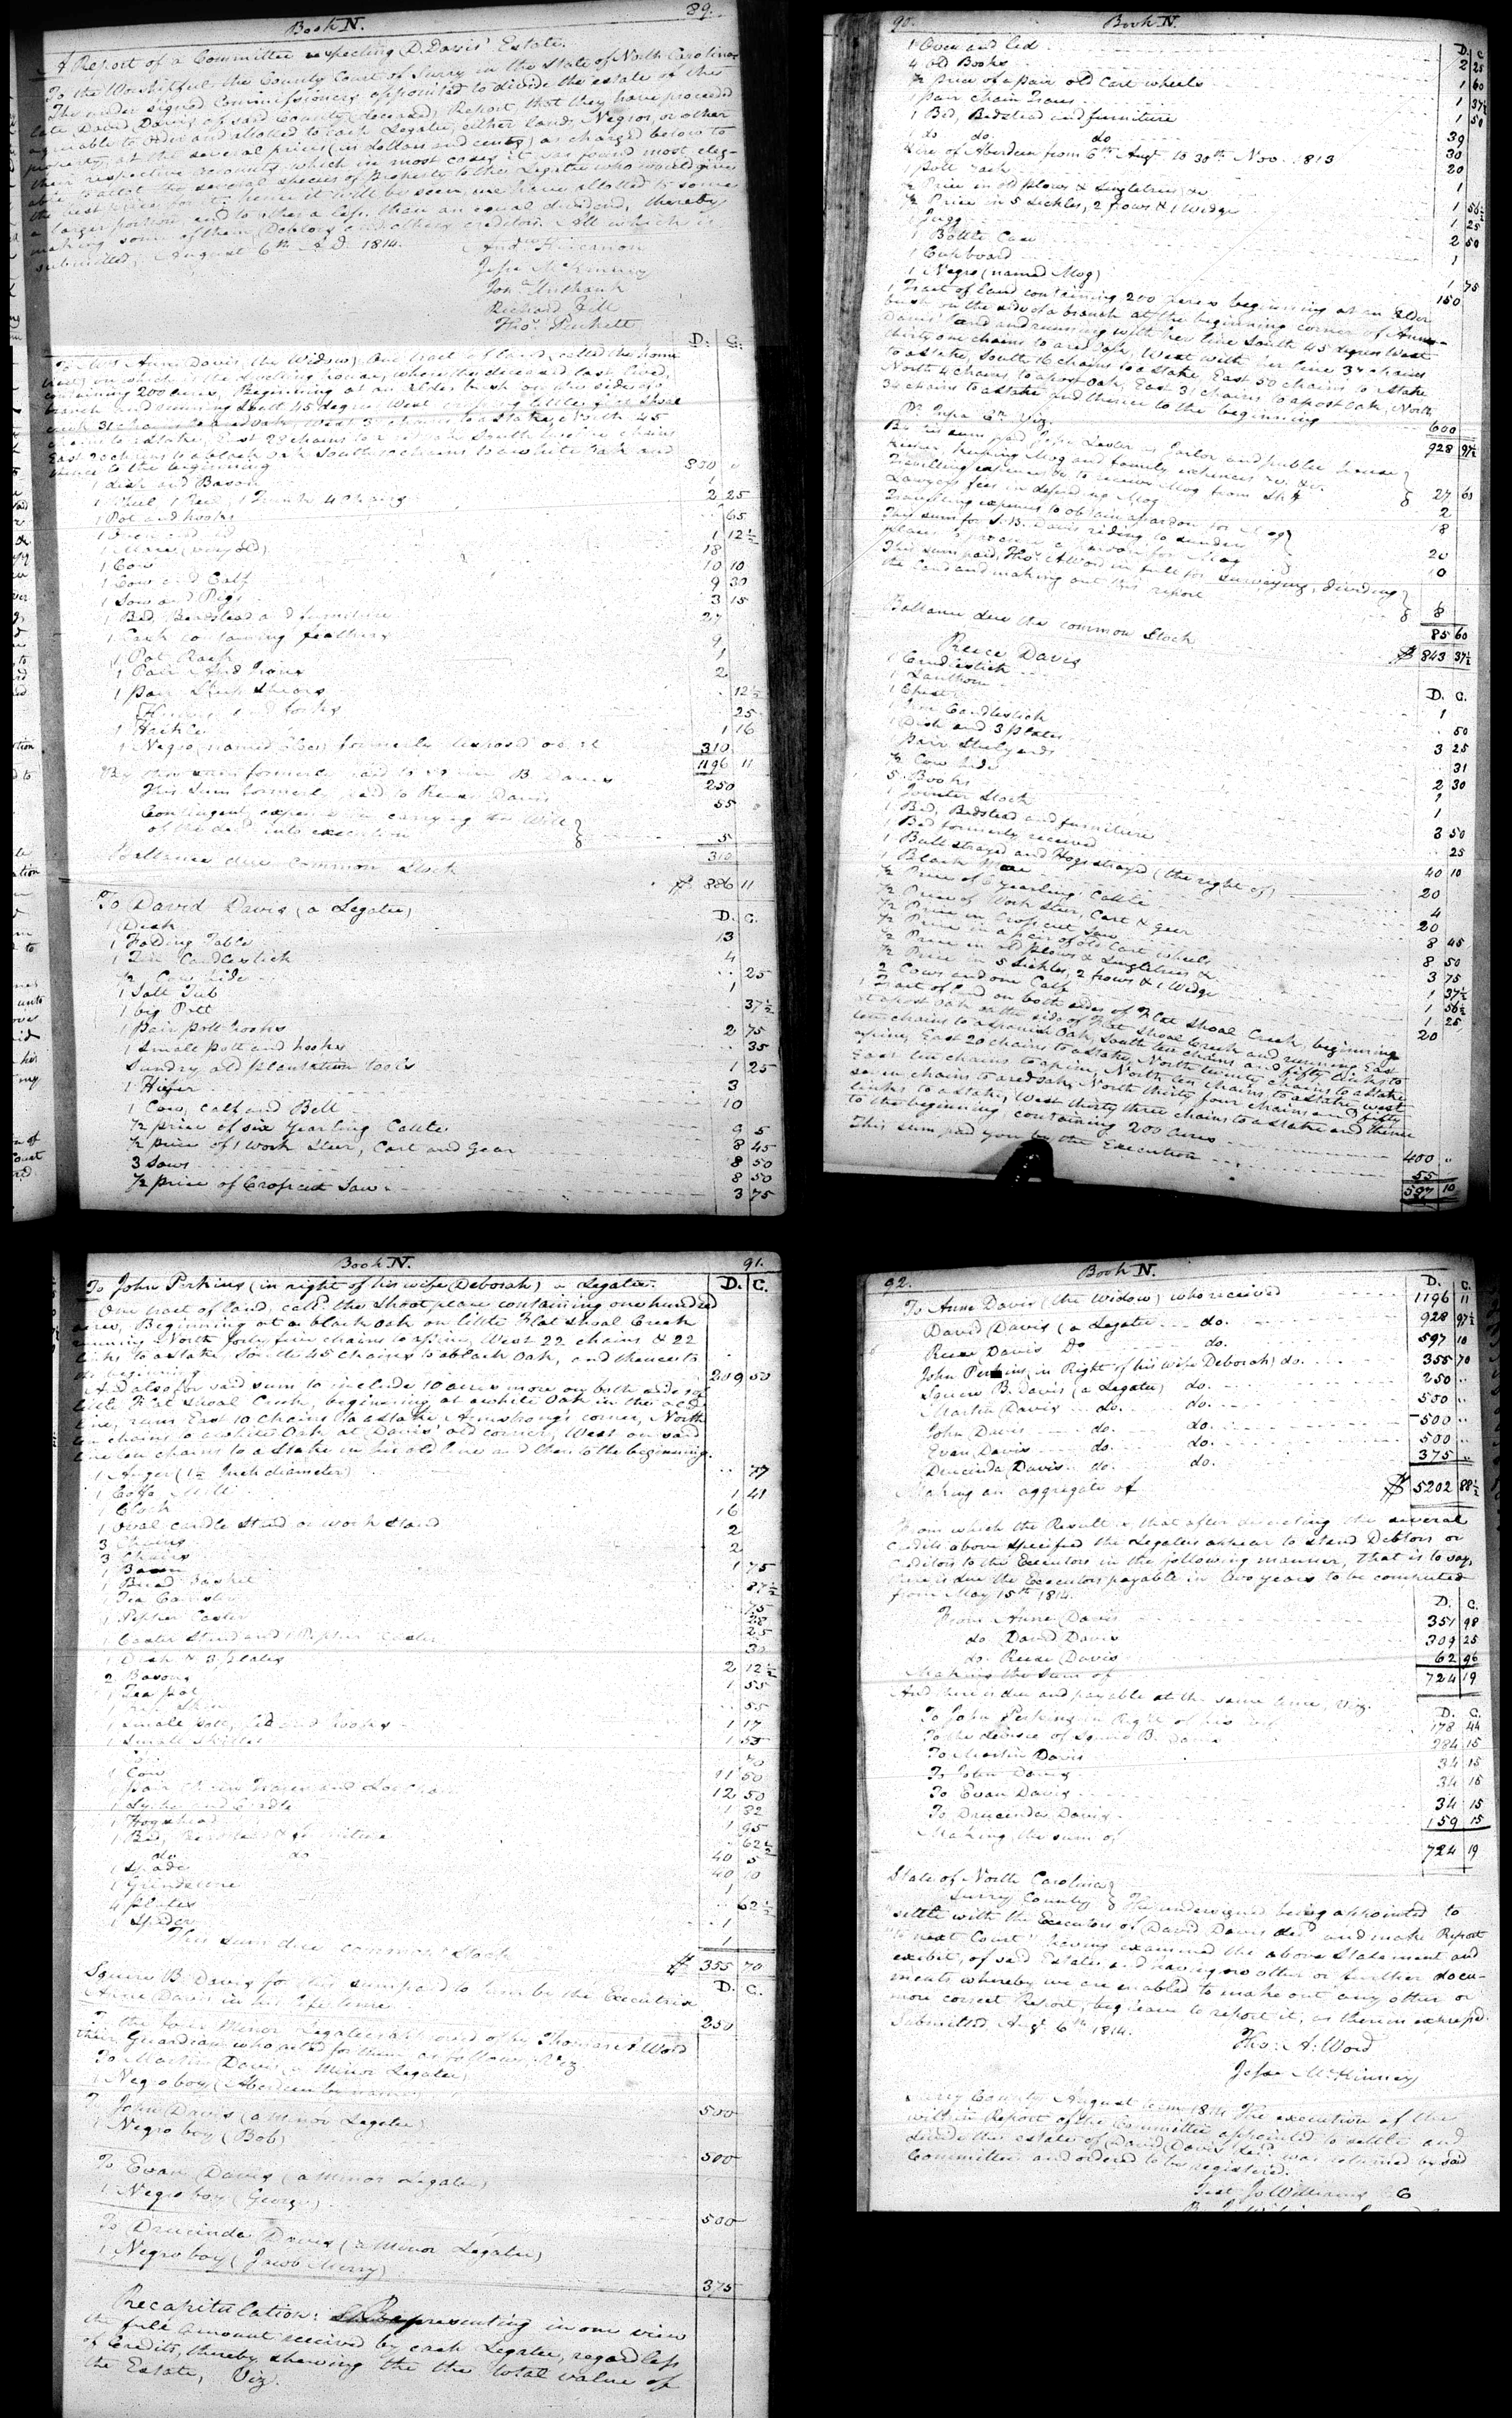 Book N. 89.
A Report of a Committee respecting D. Davis' Estate.
To the Worshipful the County Court of Surry in the State of North Carolina
The undersigned Commissioners appointed to divide the estate of the
late David Davis of said County (deceased) Report that they have proceeded
agreeable to Order and allotted to each Legatee, either land, Negros, or other
property, at the several prices (in dollars and cents) as charged below to
their respective accounts, which in most cases it was found most elig-
able to allot the several species of Property to the Legatee who would give
the best price for it; hence it will be seen, we have allotted to some
a larger portion and to others a less than an equal dividend, thereby
making some of them Debtors and others creditors. All which is
submitted, August 6th A.D. 1814.
Jesse McKinney
Jona. Unthank
Richard Hill
Thos. Puckett
D. C.
To Mrs Anne Davis, the Widow, One tract of land, called the home
tract, on which is the dwelling house, where the deceased last lived,
containing 200 acres, Beginning at an Alder bush on the side of a
branch and running South 45 degrees West crossing little Flat Shoal
creek 31 chains to a red oak, West 3 chains to a stake, North 45
chains to a stake, East 23 chains to a South twelve chains
East 20 chains to a black oak South 10 chains to a white Oak and
thence to the beginning 830 "
1 dish and Bason 1
1 Wheel 1 Reel, 1 Trunk 4 Chairs 2 25
1 Pot and hooks .. 65
1 Oven and lid 1 12½
1 Mare (very old) 18
1 Cow 10 10
1 Cow and Calf 9 30
1 Sow and Pigs 3 15
1 Bed, Bedstead and furniture 27
1 Cask containing feathers 9
1 Pot Rack 1
1 Pair And Irons 2
1 pair Sheep Shears .. 12½
.. 25
1 Hackle 1 16
1 Negro (named) formerly disposed of at 310
1196 11
By this sum formerly paid to Squire B. Davis 250
This Sum formerly paid to Reese Davis 55
Contingent expenses in carrying the Will
of the decd. into execution 5
310
Ballance due common Stock $ 886 11
To David Davis (a Legatee) D. C.
1 Desk 13
1 Folding Table 4
1 Tin Candlestick .. 25
½ Cow hide 1
1 Salt Tub .. 37½
1 big Pott 2 75
1 Pair pott hooks .. 35
1 Small pott and hooks 1 25
Sundry old plantation tools 3
1 Hiefer 10
1 Cow, calf and Bell 9 5
½ price of six yearling Cattle 8 45
½ price of 1 Work Steer, Cart and Gear 8 50
3 Sows 8 50
½ price of Crosscut Saw 3 75
90. Book N.
D. C.
1 Oven and led 2 25
4 old Books 1 60
½ Price of a pair old Cart wheels 1 37½
1 pair chain Traces 1 50
1 Bed, Bedstead and furniture 39
1 do do. do 30
Hire of Aberdeen from 6th Augt. to 30th Nov. 1813 20
1 pott rack 1
½ Price in old plows & Singletrees &c 1 56½
½ Price in 5 Sickles, 2 frows & 1 Wedge 1 25
1 Jugg 2 50
1 Bottle Case 1
1 Cupboard 1 75
1 Negro (named Mog) 150
1 Tract of land containing 200 Acres beginning at an Elder
bush on the side of a branch at the beginning corner of Anne
Davis' land and running with her line South 45 degrees West
thirty one chains to a red oak, West with her line 34 chains
to a stake, South 16 chains to a stake, East 50 chains to Stake
North 4 chains to a post Oak, East 31 chains to a post Oak, North
34 chains to a stake and thence to the beginning 600
928 97½
By this sum paid Jesse Lester as Jailor and public house
keeper, keeping Mog and family expences &c. &c. 27 60
Travelling expences &c to receive Mog from Shff 2
Lawyers fees in defending Mog 18
Travelling expences to obtain a pardon for Mog
This sum for S. B. Davis riding to sundry 20
places to procure a pardon for Mog 10
This sum paid, Thos. A Word in full for surveying, dividing
the land and making out this report 8
85 60
Ballance due the common Stock $ 843 37½
Reece Davis
D. C.
1 Candlestick 1
1 Lanthorn .. 50
1 Chest 3 25
1 Iron Candlestick .. 31
1 Dish and 3 plates 2 30
1 pair Steelyards 1
½ Cow hide 1
5 Books 3 50
1 Jointer Stock .. 25
1 Bed, Bedstead and furniture 40 10
1 Bed formerly received 20
1 Bull strayed and Hogs strayed (the right of) 4
1 Black Mare 20
½ Price of 6 yearling Cattle 8 45
½ Price of Work Steer, Cart & gear 8 50
½ Price in Crosscut Saw 3 75
½ Price in a pair of old Cart wheels 1 37½
½ Price in old plows & Singletrees & 1 56½
½ Price in 5 Sickles, 2 frows & 1 Wedge 1 25
2 Cows and one Calf 20
1 Tract of land on both sides of Flat Shoal Creek, beginning
at a post Oak on the side of Flat Shoal Creek and running East
ten chains to a spanish Oak, South ten chains and fifty links to
a pine, East 20 chains to a stake, North twenty chains to a stake
East ten chains to a pine, North ten chains to a stake West
seven chains to a red oak, North thirty four chains and fifty
links to a stake, West thirty three chains to a stake and thence
to the beginning containing 200 acres 400 "
This sum paid you by the Executrix 55
597 10
Book N. 91.
To John Perkins (in right of his wife Deborah) a Legatee. D. C.
One tract of land, calld. the Shoot place containing one hundred
acres, Beginning at a black Oak on little Flat Shoal Creek
running North forty five chains to a pine, West 22 chains & 22
links to a stake, South 45 chains to a black Oak, and thence to
the beginning 209 50
And also for said sum to include 10 acres more on both sides of
little Flat Shoal Creek, beginning at a white Oak in the old
line, runs East 10 chains to a stake Armstrong's corner, North
ten chains to a white Oak at Davis' old corner, West on said
line ten chains to a Stake in his old line and then to the beginning.
1 Auger (1½ Inch diameter) .. 77
1 Coffe Mill 1 41
1 Clock 16
1 Oval candle Stand or Work Stand 2
3 Chairs 2
3 Chairs 1 75
1 Bason .. 87½
1 Bread Basket .. 75
1 Tea Canister
1 Pepper Caster 25
1 Caster Stand and 1 Pepper Caster 30
1 Dish & 3 plates 2 12½
2 Basons 1 55
1 Tea pot
.. 55
1 Small Pott, lid and hooks 1 17
1 Small Skillet
1 Cow 11 50
1 pair Chain Traces and 12 50
1 Cradle 1 32
1 Hogshead 1 95
1 Bed, Bedstead & furniture 62½
do do 40 5
1 Spade 40 10
1 Grindstone 1
4 plates .. 62½
1 Spider 1
This sum due common Stock $ 355 70
D. C.
Squire B. Davis for this sum paid to him by the Executrix
Anne Davis in his life time 250
To the four Minor Legatees by Thomas A Word
their Guardian who acted for them as follows, Viz
To Martin Davis (a Minor Legatee)
1 Negro boy (Aberdeen by name) 500
To John Davis (a Minor Legatee)
1 Negro boy (Bob) 500
To Evan Davis (a Minor Legatee)
1 Negro boy (George) 500
To Drucinda Davis (a Minor Legatee)
1 Negro boy (Jacob Merry) 375
Recapitulation: Representing in one view
the full amount received by each Legatee, regardless
of Credits, thereby shewing the the total value of
the Estate, Viz.
92. Book N.
D. C.
To Anne Davis (the Widow) who received 1196 11
David Davis (a Legatee do. 928 97½
Reese Davis Do do. 597 10
John Perkins, in Right of his wife Deborah) do. 355 70
Squire B. Davis (a Legatee) do. 250 ..
Martin Davis do. do. 500 ..
John Davis do. do. 500 ..
Evan Davis do. do. 500 ..
Drucinda Davis do. do. 375 ..
Making an aggregate of $ 5202 88½
From which the Result is that after deducting the several
Credits above specified the Legatees appear to stand Debtors or
Creditors to the Executors in the following manner, That is to say,
there is due the Executors payable in two years to be computed
from May 15th 1814. D. C.
From Anne Davis 351 98
do David Davis 309 25
do. Reese Davis 62 96
Making the sum of 724 19
And there is due and payable at the same time, Viz. D. C.
To John Perkins in Right of his wife 178 44
To the devisee of Squire B. Davis 284 15
To Martin Davis 34 15
To John Davis 34 15
To Evan Davis 34 15
To Drucinda Davis 159 15
Making the sum of 724 19
State of North Carolina
Surry County The undersigned being appointed to
settle with the Executors of David Davis decd. and make Report
to next Court having examined the above Statement and
exibit, of said Estate and having no other or further docu-
ments whereby we are enabled to make out any other or
more correct Report, beg leave to report it, as therein expressd.
Submitted Augt. 6th 1814.
Thos. A. Word
Jesse McKinney
Surry County August term 1814 The execution of the
within Report of the Committee appointed to settle and
divide the estate of David Davis decd. was returned by said
Committee and ordered to be registered.
Test Jo Williams C